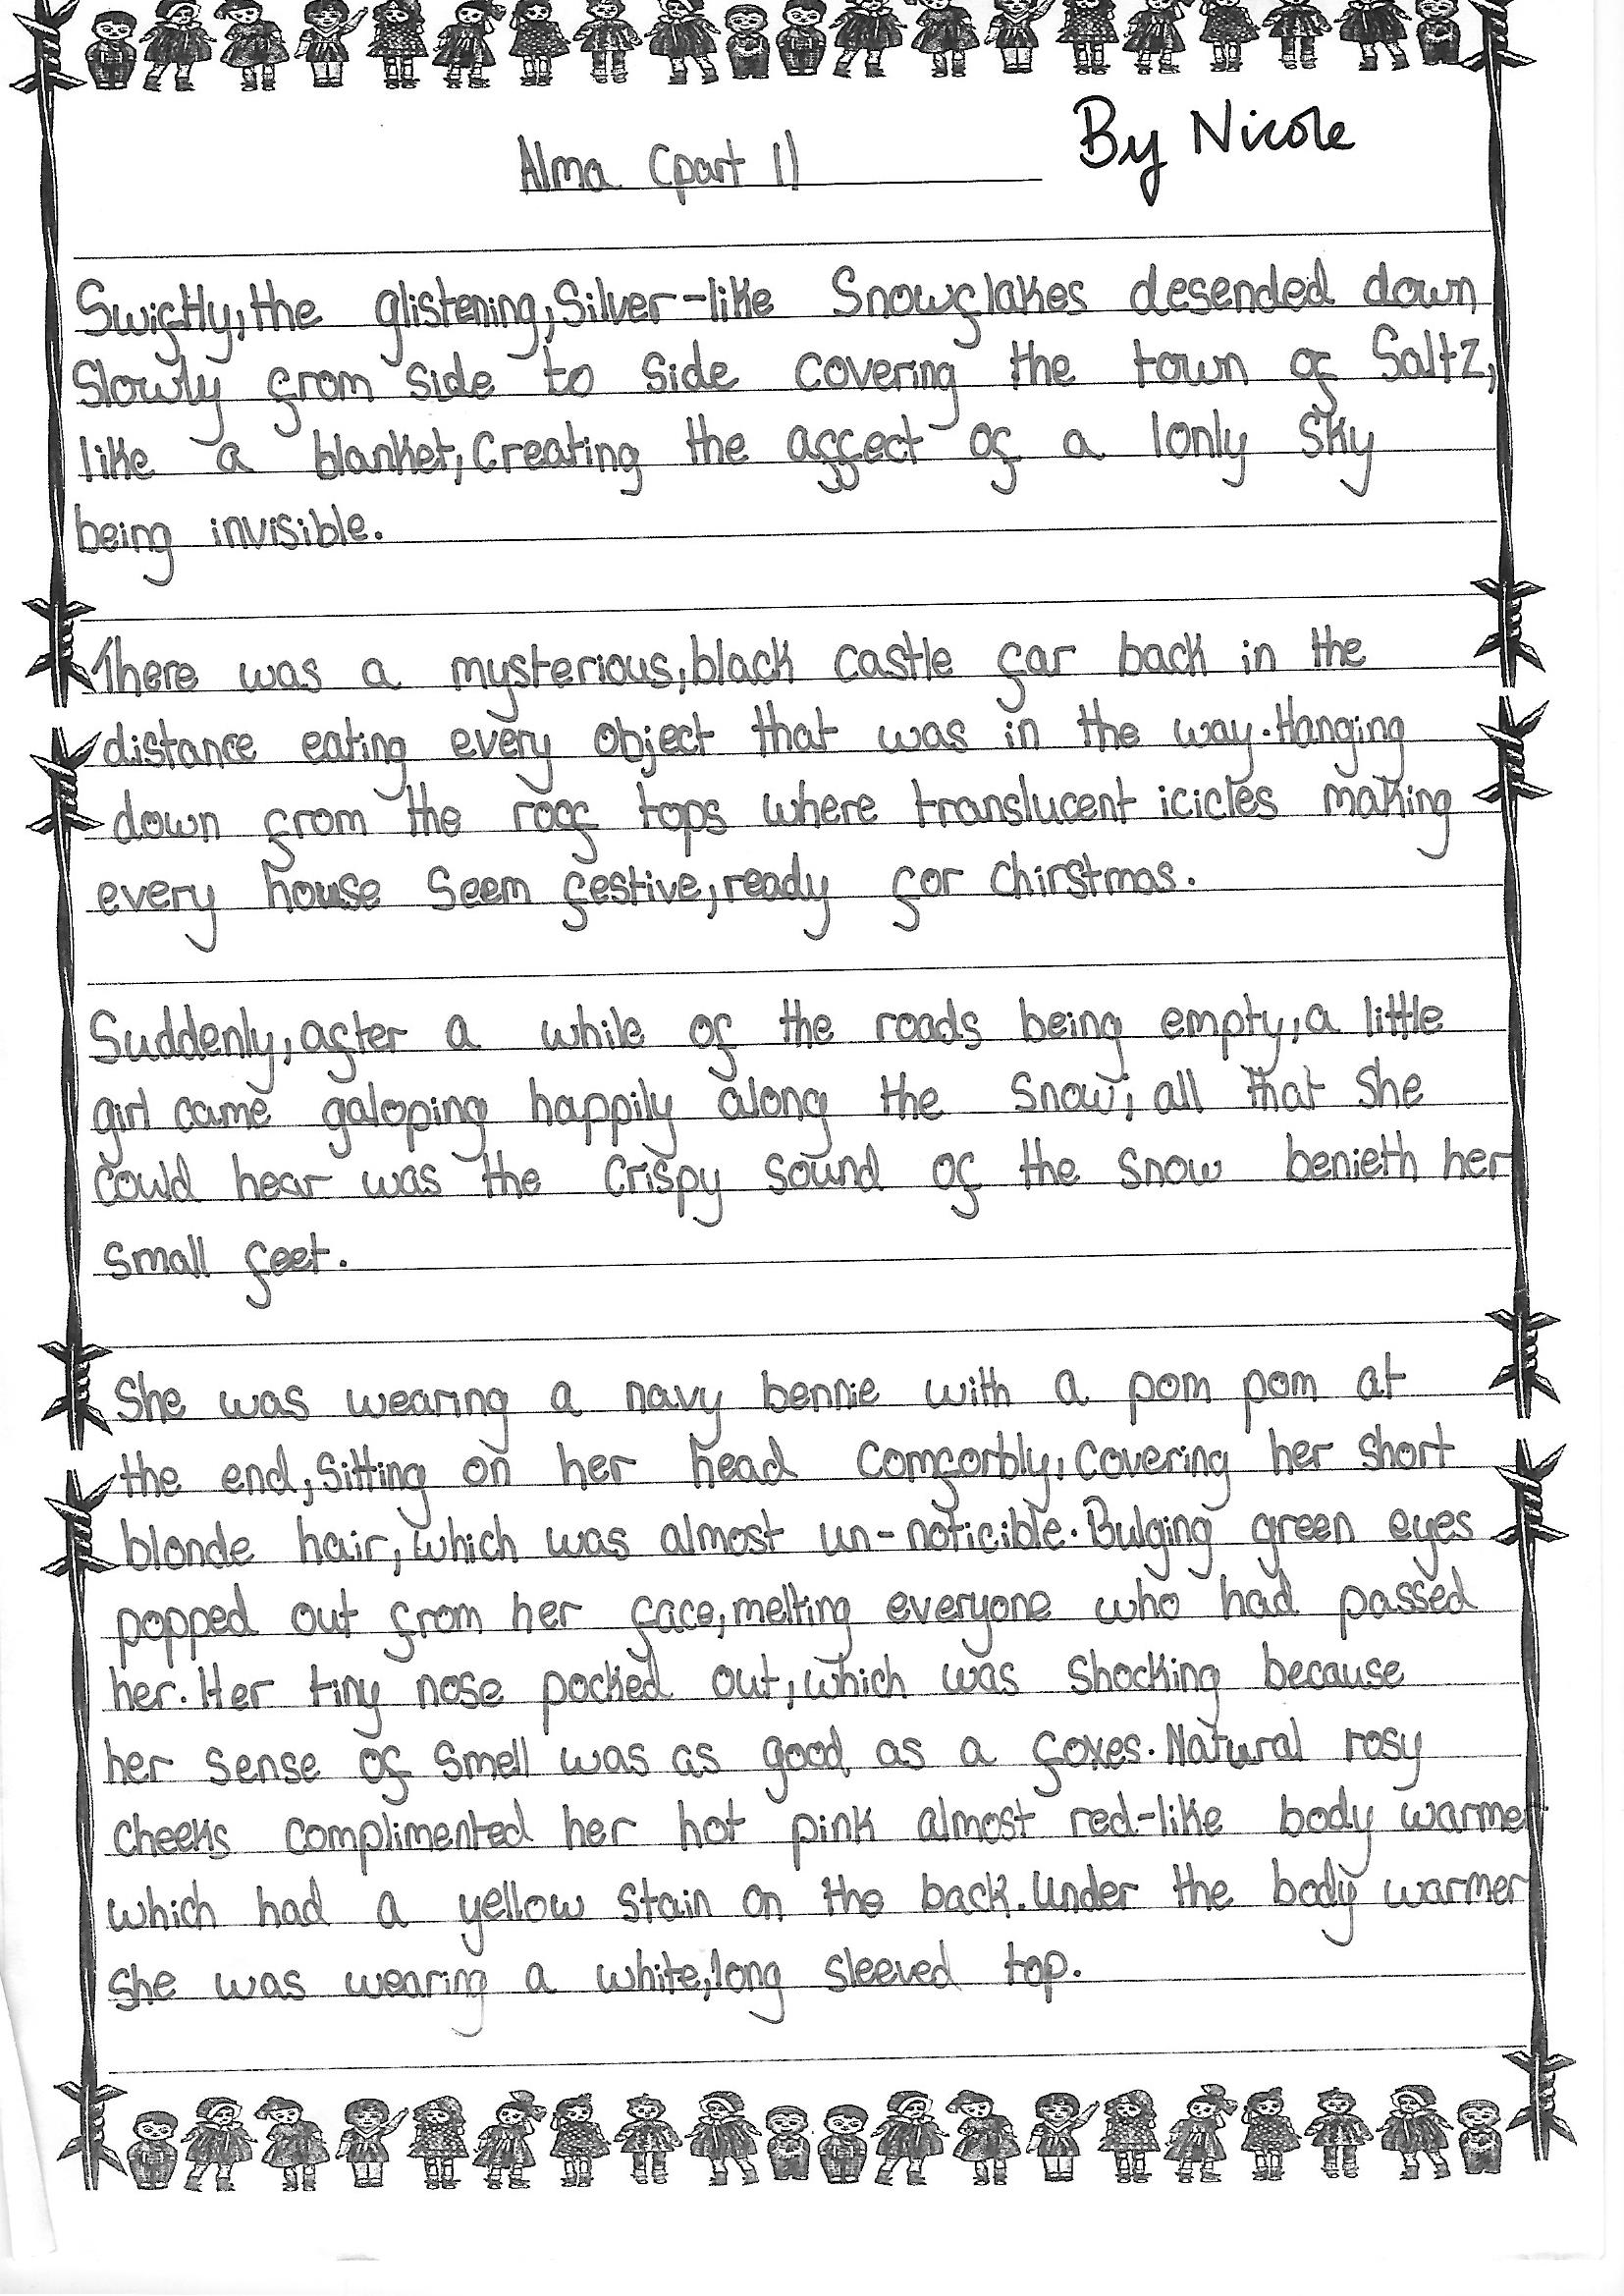 Alma (part 1)
By Nicole
Swiftly, the glistening, Silver-like Snowflakes desended down
Slowly from side to side covering the town of Saltz,
like a blanket, Creating the affect of a lonly Sky
being invisible.
There was a mysterious, black castle far back in the
distance eating every object that was in the way. Hanging
down from the roof tops where translucent icicles making
every house seem festive, ready for Chirstmas.
Suddenly, after a while of the roads being empty, a little
girl came galoping happily along the snow; all that she
could hear was the crispy sound of the snow benieth her
small feet.
She was wearing a navy bennie with a pom pom at
the end, sitting on her head comfortbly, covering her short
blonde hair, which was almost un-noticible. Bulging green eyes
popped out from her face, melting everyone who had passed
her. Her tiny nose pocked out, which was shocking because
her sense of smell was as good as a foxes. Natural rosy
cheeks complimented her hot pink almost red-like body warmer
which had a yellow stain on the back. Under the body warmer
she was wearing a white, long sleeved top.